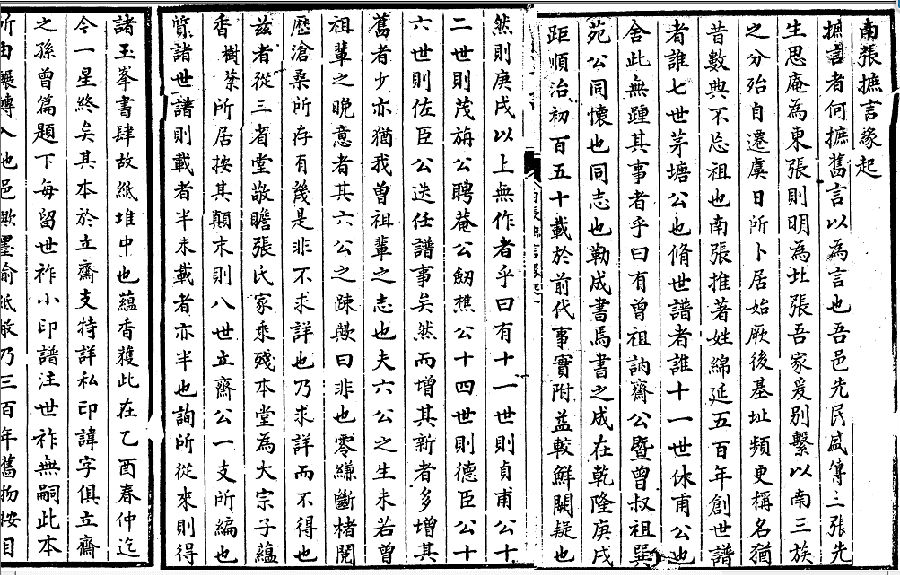 南張摭言緣起
摭言者何摭舊言以為言也吾邑先民盛傳三張先
生思庵為東張則明為北張吾家爰別繫以南三族
之分殆自遷虞日所卜居始厥後基址頻更稱名猶
昔數典不忘祖也南張推著姓綿延五百年創世譜
者誰七世茅塘公也脩世譜者誰十一世休甫公也
舍此無踵其事者乎曰有曾祖訥齋公暨曾叔祖巽
苑公同懷也同志也勒成書焉書之成在乾隆庚戌
距順治初百五十載於前代事實附益較鮮闕疑也
然則庚戌以上無作者乎曰有十一世則貞甫公十
二世則茂旃公聘菴公劒樵公十四世則德臣公十
六世則佐臣公迭任譜事矣然而增其新者多增其
舊者少亦猶我曾祖輩之志也夫六公之生未若曾
祖輩之晚意者其六公之疎歟曰非也零縑斷楮閱
歷滄桑所存有幾是非不求詳也乃求詳而不得也
茲者從三省堂敬瞻張氏家乘殘本堂為大宗子蘊
香樹棻所居按其顛末則八世立齋公一支所編也
質諸世諸則載者半未載者亦半也詢所從來則得
諸玉峯書肆故紙堆中也蘊香穫此在乙酉春仲迄
今一星終矣其本於立齋支特詳私印諱字俱立齋
之孫曾篇題下每留世祚小印譜注世祚無嗣此本
所由輾轉入也邑歟墨渝紙敝乃三百年舊物按目